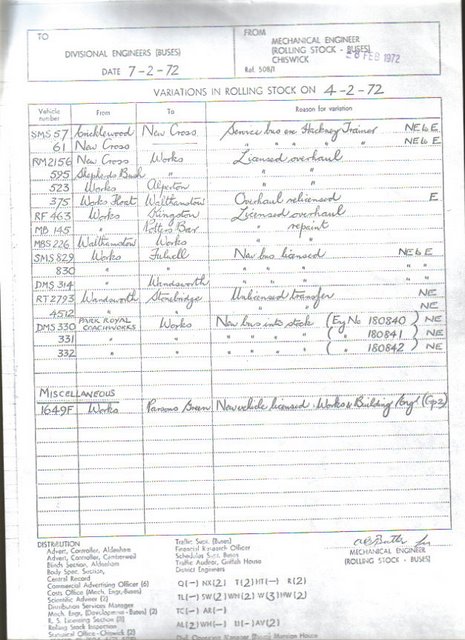 TO
DIVISIONAL ENGINEERS (BUSES)
DATE 7-2-72
FROM
MECHANICAL ENGINEER
(ROLLING STOCK - BUSES)
CHISWICK
FEB 1972
Ref. 508/1
VARIATIONS IN ROLLING STOCK ON 4-2-72
Vehicle number From To Reason for variation
SMS 57 Cricklewood New Cross Service bus ex Hackney Trainer NE to E
61 New Cross " " NE to E
RM 2156 New Cross Works Licensed overhaul
595 Shepherds Bush " " "
523 Works Alperton " "
375 Works Float Walthamstow Overhaul relicensed E
RF 463 Works Kingston Licensed overhaul
MB 145 " Potters Bar " repaint
MBS 226 Walthamstow Works " "
SMS 829 Works Fulwell New bus licensed NE to E
830 " " " " " " "
DMS 314 " Wandsworth " " " " "
RT 2793 Wandsworth Stonebridge Unlicensed transfer NE
4512 " " " " NE
DMS 330 PARK ROYAL COACHWORKS Works New bus into stock (Eg No 180840) NE
331 " " " " " " ( " 180841) NE
332 " " " " " " ( " 180842) NE
MISCELLANEOUS
1649F Works Parsons Green New vehicle licensed. Works & Building (Gp2)
MECHANICAL ENGINEER
(ROLLING STOCK - BUSES)
DISTRIBUTION
Advert. Controller, Aldenham
Advert. Controller, Camberwell
Blinds Section, Aldenham
Body Spec. Section,
Central Record
Commercial Advertising Officer (6)
Costs Office (Mech. Engr.-Buses)
Scientific Adviser (2)
Distribution Services Manager
Mech. Engr. (Development - Buses) (2)
R. S. Licensing Section (3)
Rolling Stock Inspection
Statistical Office - Chiswick (2)
Traffic Supt. (Buses)
Financial Research Officer
Schedules Supt. Buses
Traffic Auditor, Griffith House
District Engineers
Q(-) NX(2) T(2) HT(-) R(2)
TL(-) SW(2) WH(2) W(3) HW(2)
TC(-) AR(-)
AL(2) WA(-) U(-) AV(2)